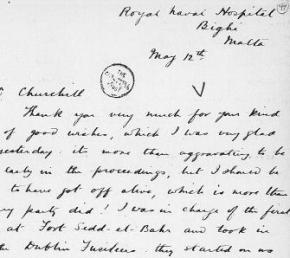 Royal Naval Hospital
Bighi
Malta
May 12th
Churchill
Thank you very much for your kind
of good wishes, which I was very glad
yesterday. its more than aggravating to be
early in the proceedings, but I should be
to have got off alive, which is more than
my party did! I was in charge of the first
at Fort Sedd-el-Bahr and took in
the Dublin Fusiliers. they started on us